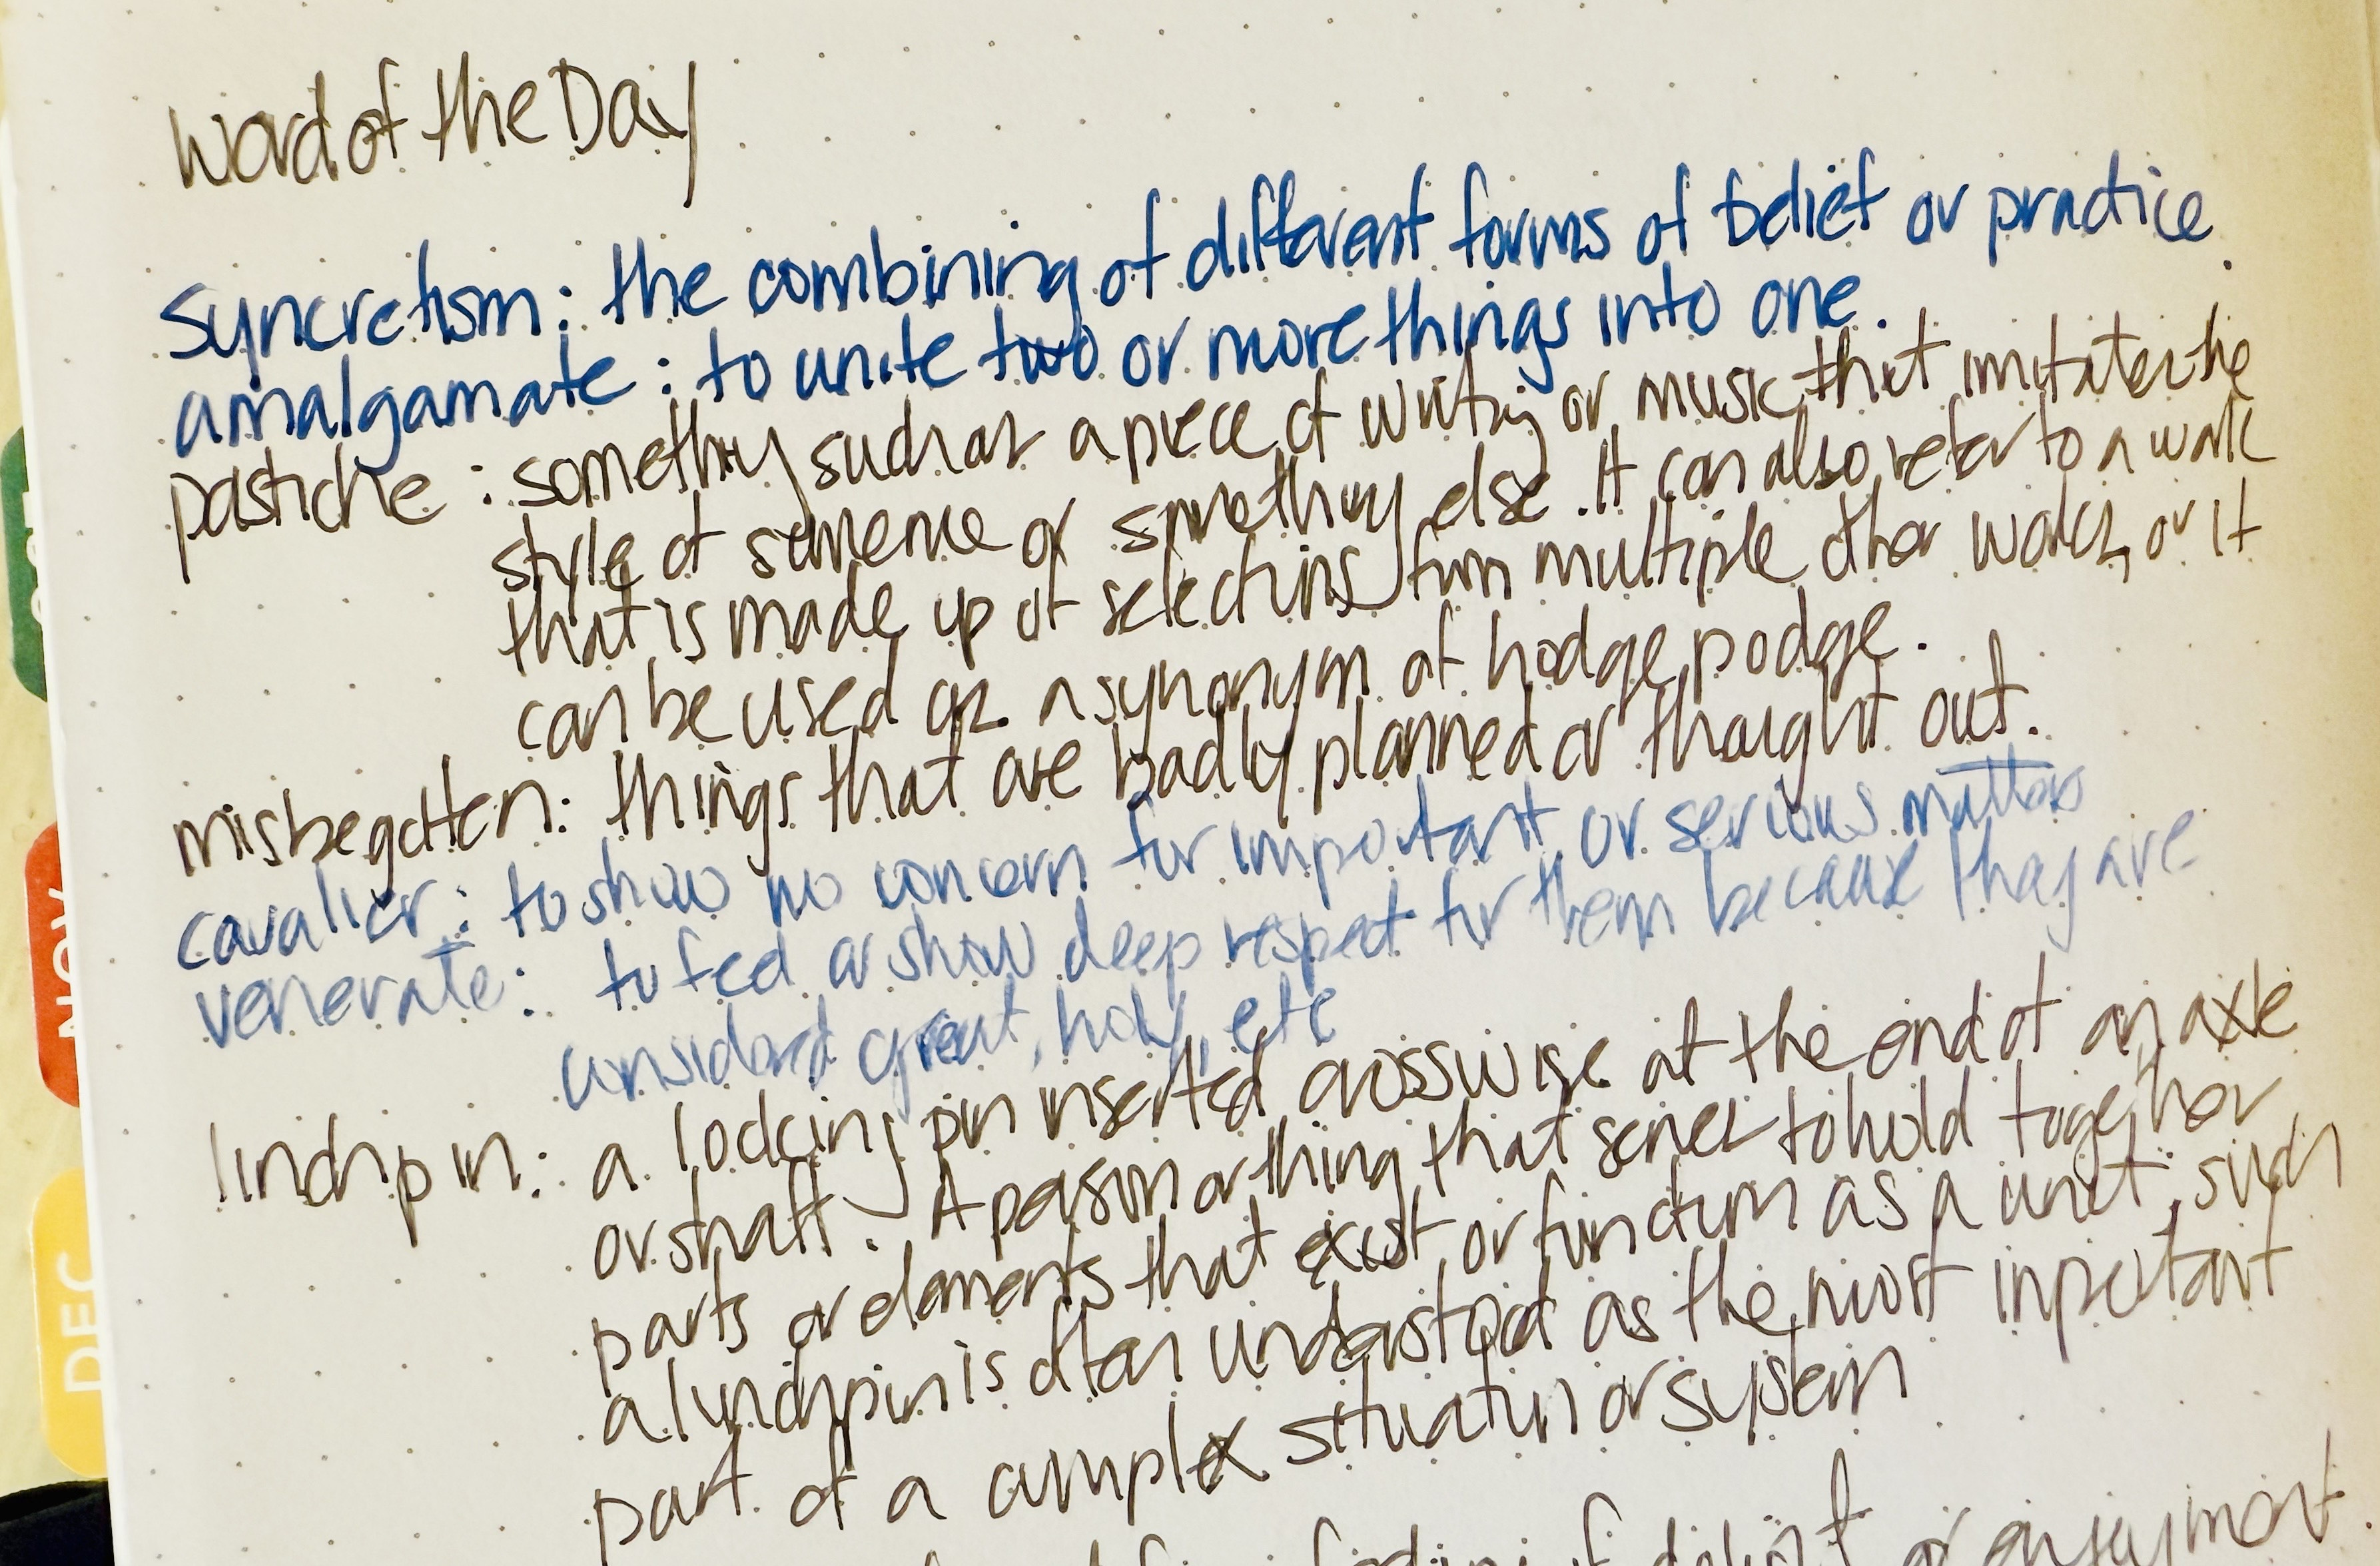 Word of the Day
syncretism: the combining of different forms of belief or practice.
amalgamate: to unite two or more things into one.
pastiche: something such as a piece of writing or music that imitates the
style of someone or something else. It can also refer to a work
that is made up of selections from multiple other works, or it
can be used as a synonym of hodgepodge.
misbegotten: things that are badly planned or thought out.
cavalier: to show no concern for important or serious matters
venerate: to feel or show deep respect for them because they are
considered great, holy, etc
linchpin: a locking pin inserted crosswise at the end of an axle
or shaft. A person or thing that serves to hold together
parts or elements that exist or function as a unit. such
a linchpin is often understood as the most inportant
part of a complex situation or system
of delight or enjoyment.
NOV
DEC